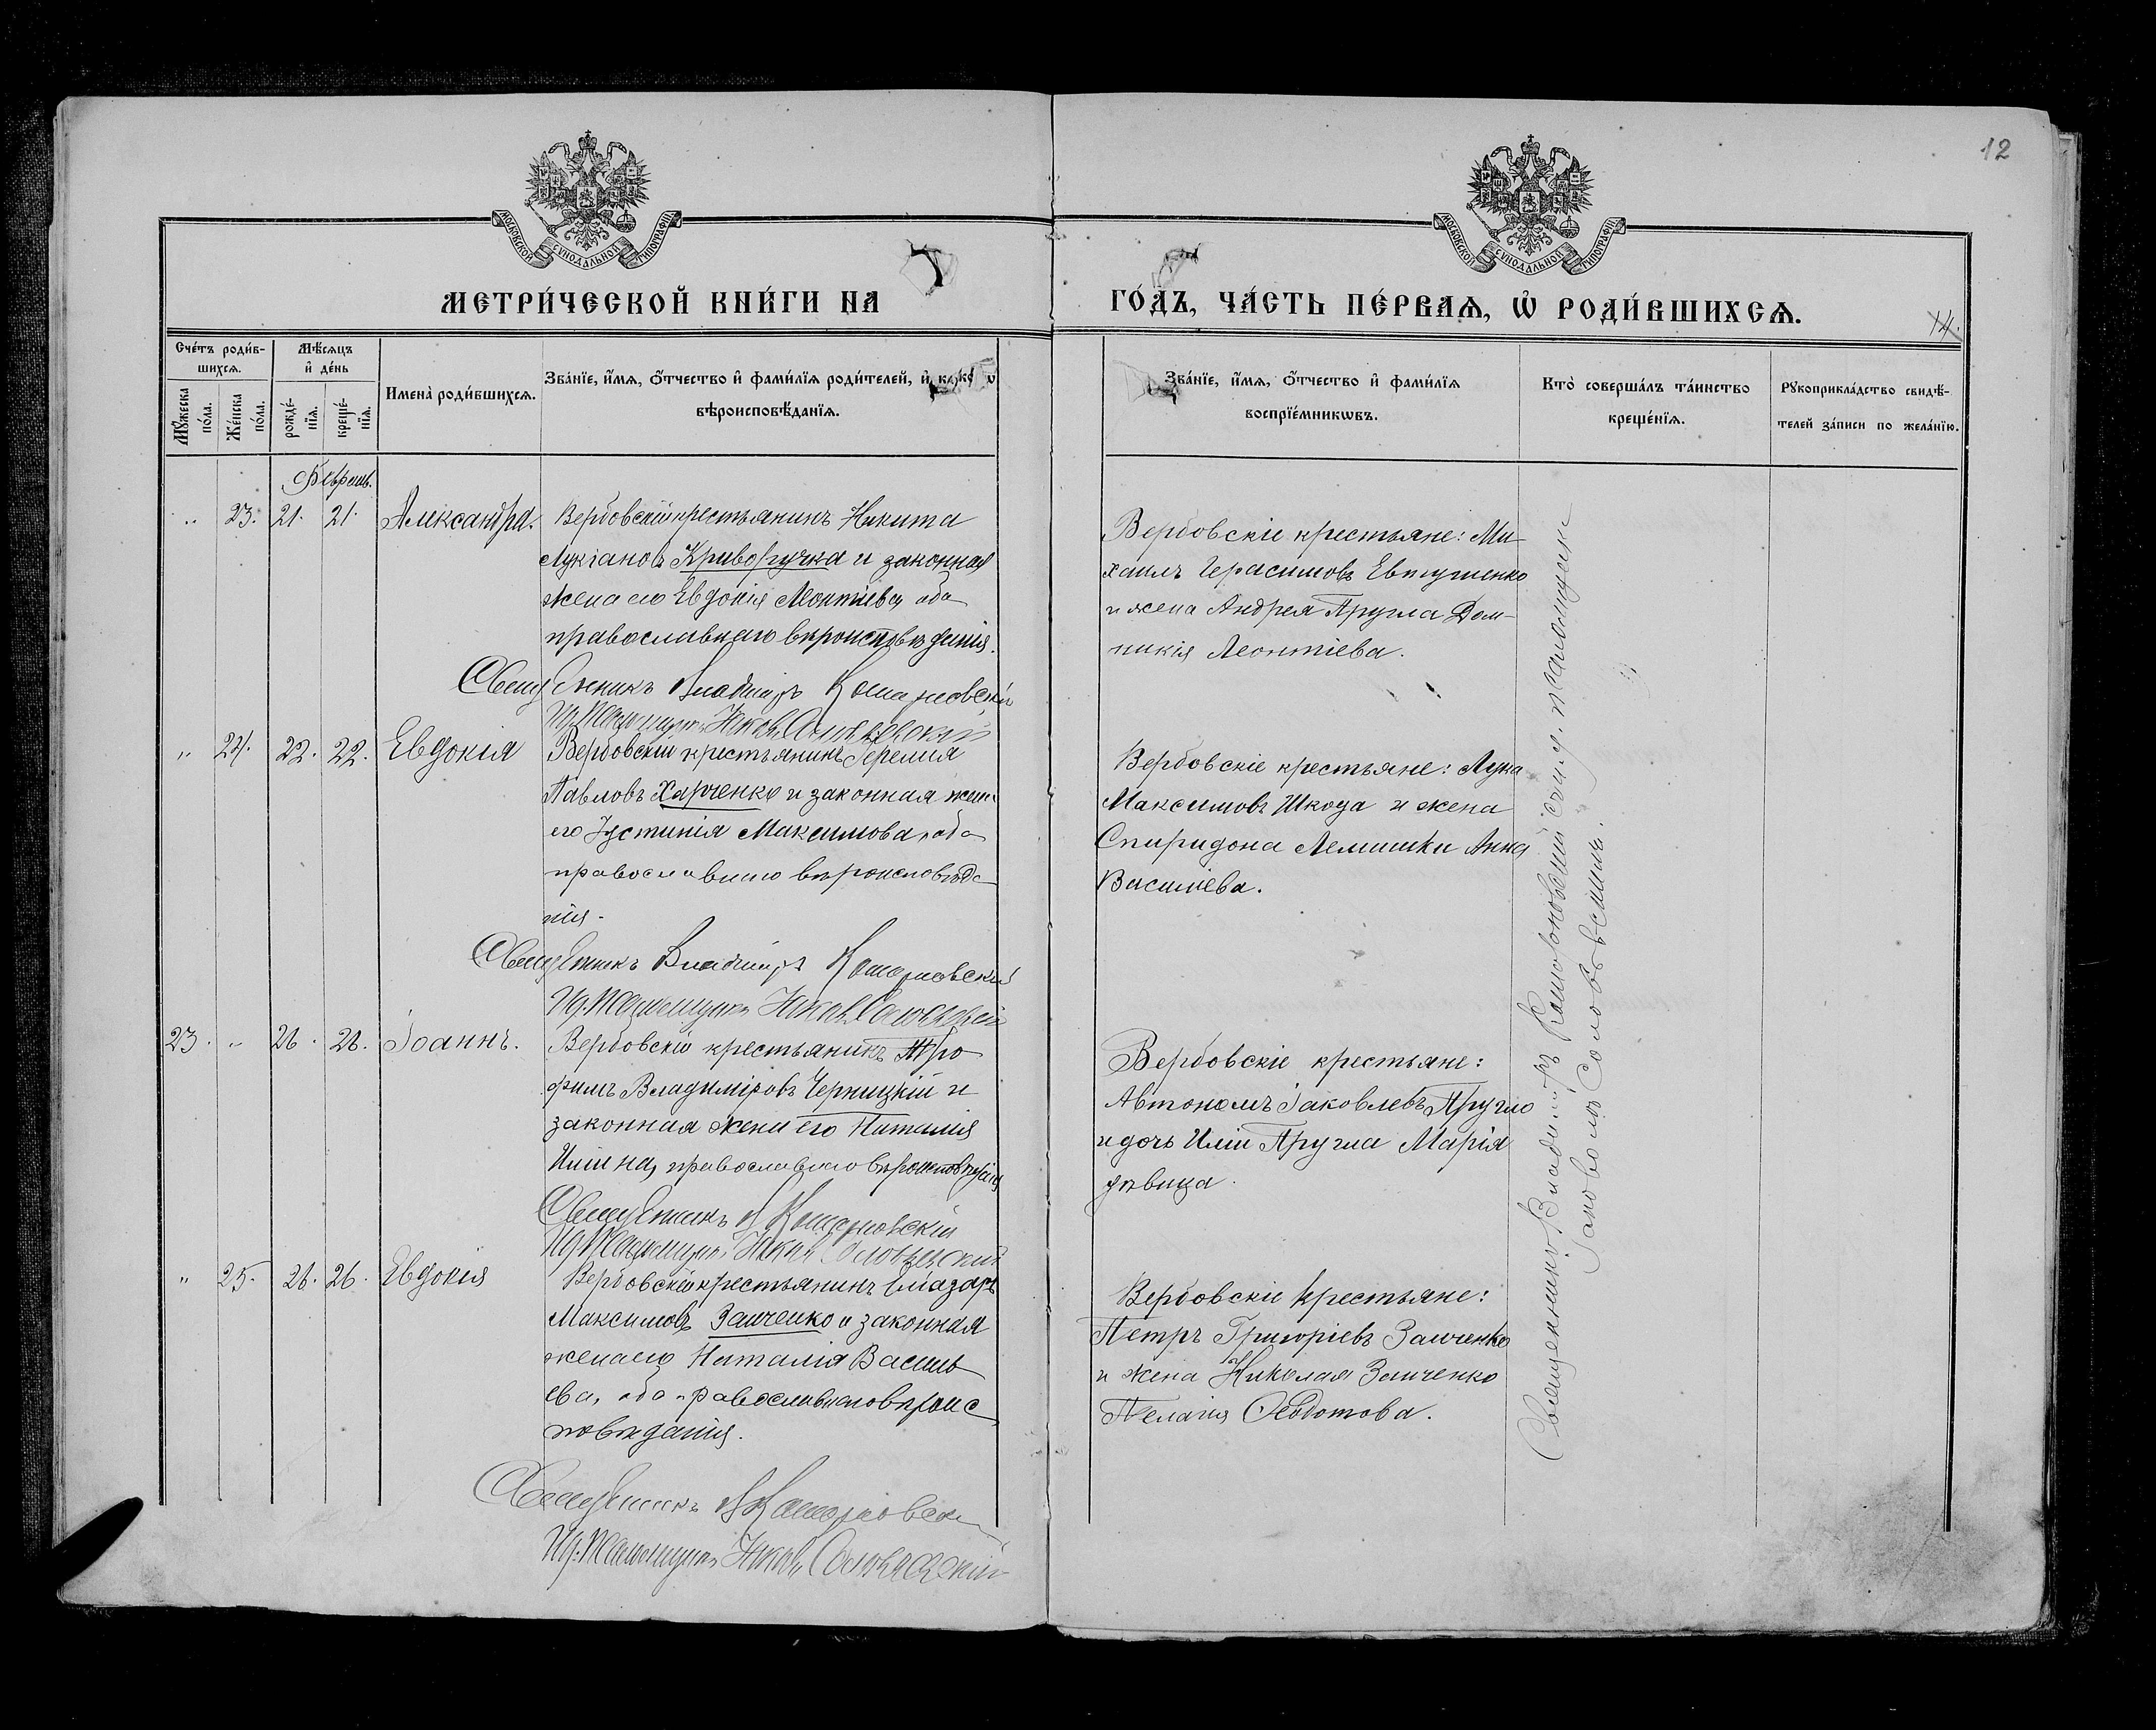 12
МОСКОВСКОЙ СУНОДАЛЬНОЙ ТИПОГРАФІИ
МОСКОВСКОЙ СУНОДАЛЬНОЙ ТИПОГРАФІИ
МЕТРИ́ЧЕСКОЙ КНИ́ГИ НА
ГО́ДЪ, ЧА́СТЬ ПЕ́РВАѦ, Ѽ РОДИ́ВШИХСѦ.
14.
Сче́тъ роди́в-
шихсѧ.
Мꙋжеска
по́ла.
Же́нска
по́ла.
Мѣсѧцъ
и҆ де́нь
рожде́-
нїѧ.
креще́-
нїѧ.
Имена̀ роди́вшихсѧ.
Зва́нїе, и҆́мѧ, ѻ҆́тчество и҆ фами́лїѧ роди́телей, и҆ како́гѡ
вѣроисповѣ́данїѧ.
Зва́нїе, и҆́мѧ, ѻ҆́тчество и҆ фами́лїѧ
воспрїе́мникѡвъ.
Кто̀ соверша́лъ та́инство
креще́нїѧ.
Рꙋкоприкла́дство свидѣ́-
телей за́писи по жела́нїю.
Февраль.
„ 23. 21. 21. Александра.
Вербовскій крестьянинъ Никита
Лукіановъ Криворучка и законная
жена его Евдокія Леонтіева, оба
православнаго вѣроисповѣданія.
Священникъ Владиміръ
Вербовскіе крестьяне: Ми-
хаилъ Герасимовъ Евтушенко
и жена Андрея Пругла Дом-
никія Леонтіева.
„ 24. 22. 22. Евдокія
Вербовскій крестьянинъ Іеремія
Павловъ Харченко и законная жена
его Іустинія Максимова, оба
православнаго вѣроисповѣда-
нія.
Священникъ Владиміръ
Вербовскіе крестьяне: Лука
Максимовъ Шкода и жена
Спиридона Лемишки Анна
Василіева.
23. „ 26. 26. Іоаннъ.
Вербовскій крестьянинъ Тро-
фимъ Владиміровъ Черницкій и
законная жена его Наталія
Иліина, православнаго вѣроисповѣданія
Священникъ В
Вербовскіе крестьяне:
Автономъ Іаковлевъ Пругло
и дочь Иліи Пругла Марія
дѣвица.
„ 25. 26. 26. Евдокія
Вербовскій крестьянинъ Елеазаръ
Максимовъ Заиченко и законная
жена его Наталія Василь-
ева, оба православнаго вѣроис-
повѣданія.
Священникъ В
Вербовскіе крестьяне:
Петръ Григоріевъ Заиченко
и жена Николая Заиченко
Пелагія Ѳеодотова.
Священникъ Владиміръ